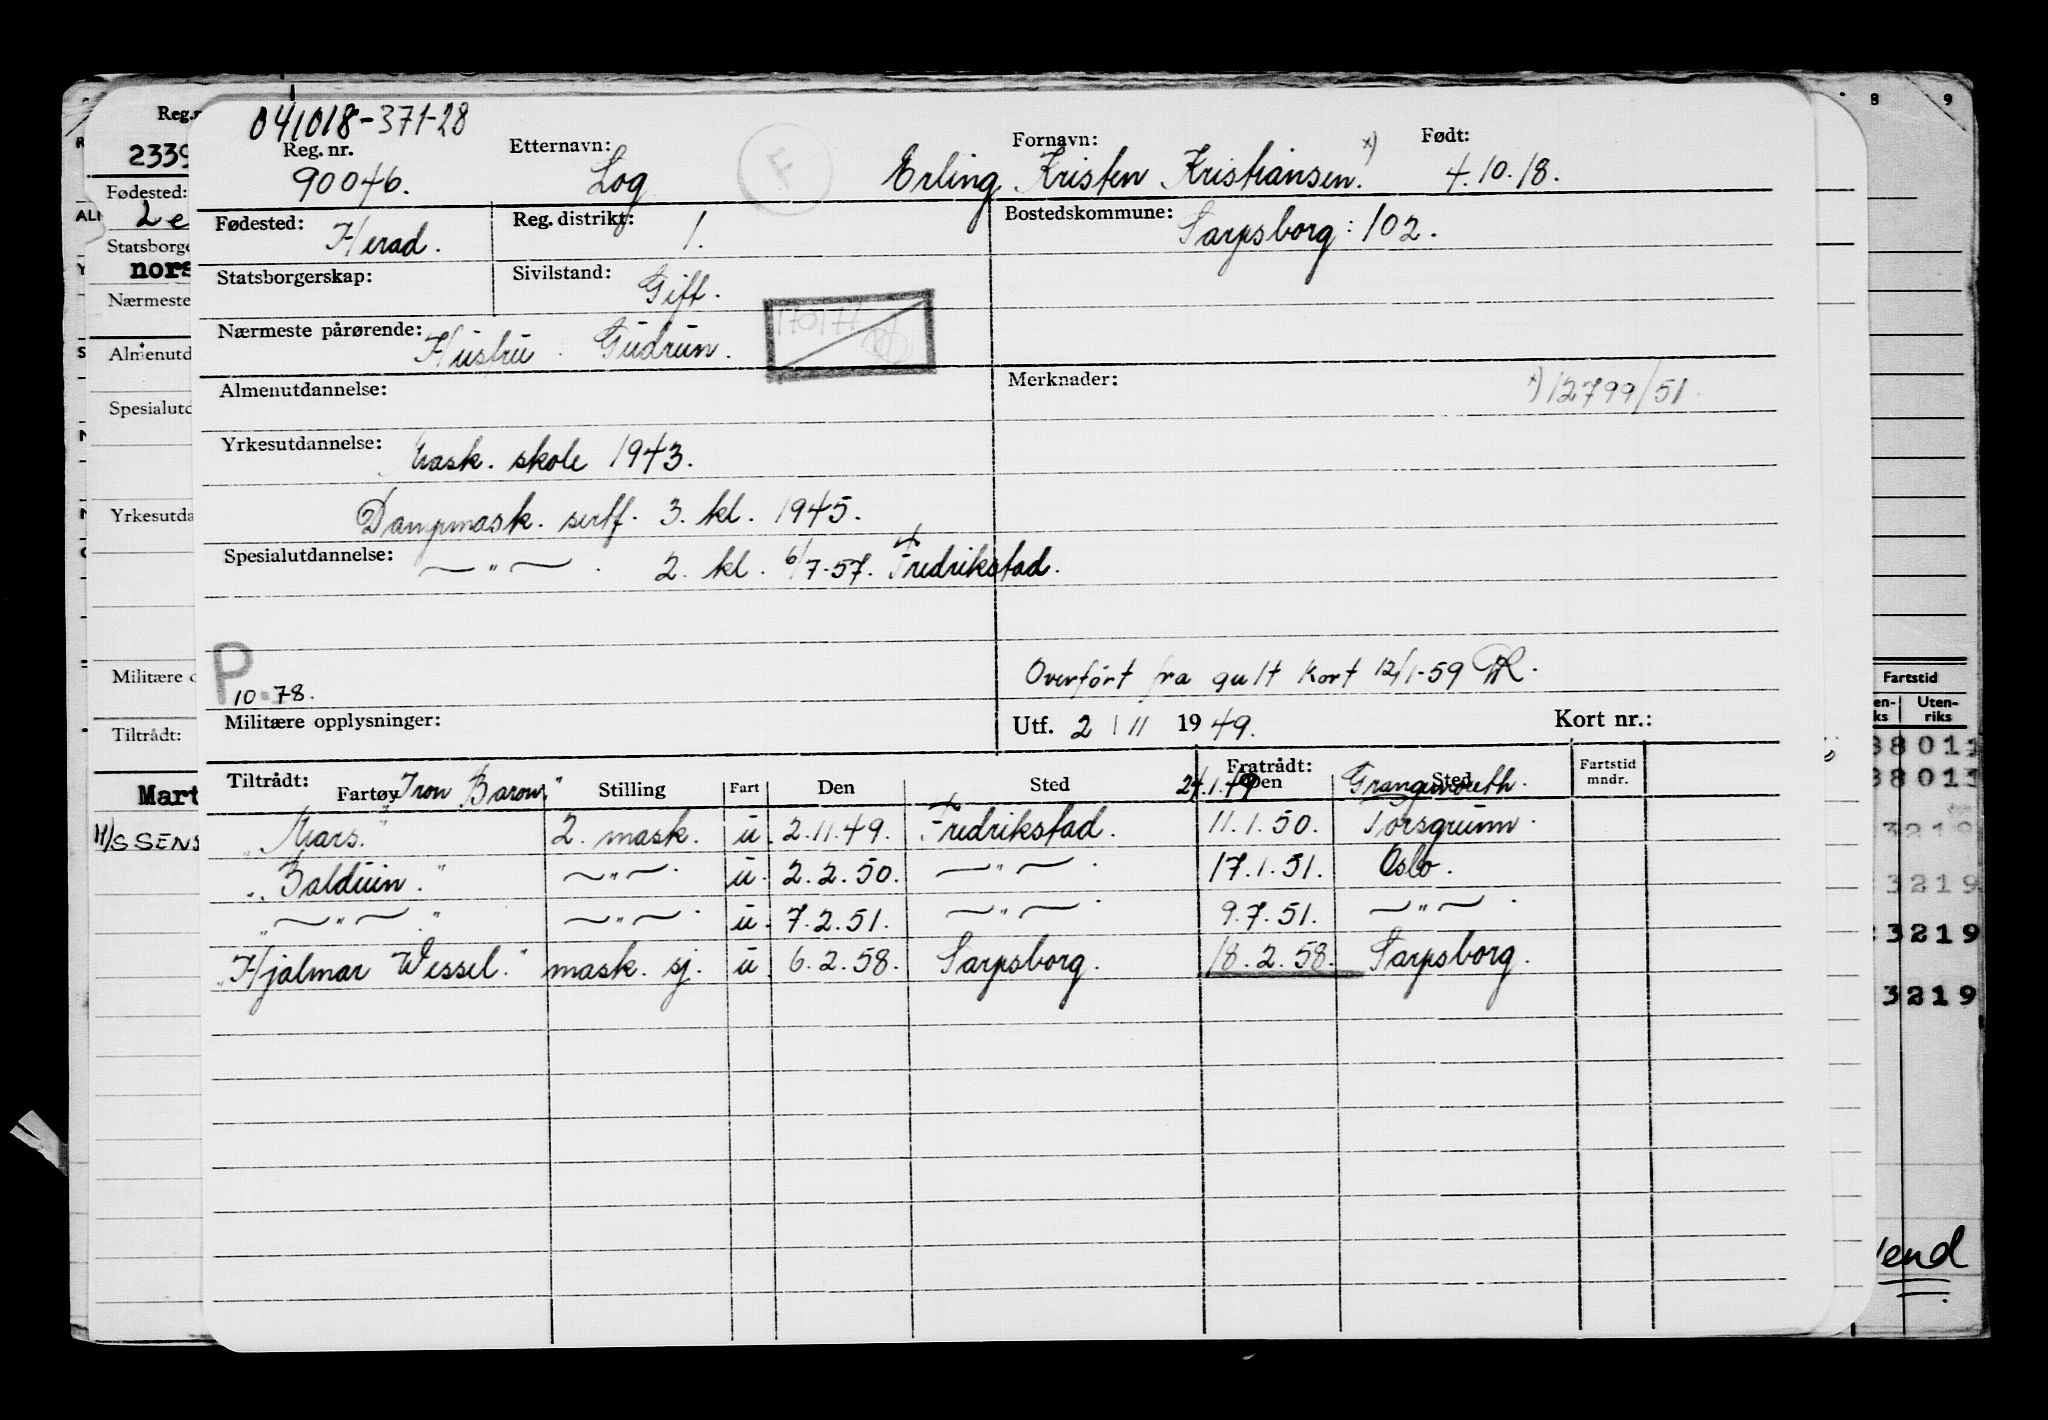 041018-371-28
Reg. nr. Etternavn: Fornavn: Født:
90046. Log F Erling Kristen Kristiansen. x) 4.10.18.
Fødested: Herad. Reg. distrikt: 1. Bostedskommune: Sarpsborg: 102.
Statsborgerskap: Sivilstand: Gift.
Nærmeste pårørende: Hustru: Gudrun.
Almenutdannelse: Merknader: x) 12799/51.
Yrkesutdannelse: Mask. skole 1943.
Dampmask. sertf. 3. kl. 1945.
Spesialutdannelse: —"— . 2. kl. 6/7-57. Fredrikstad.
P
10.78.
Overført fra gult kort 12/1-59
Militære opplysninger: Utf. 2 / 11 1949. Kort nr.:
Tiltrådt: Fratrådt: Fartstid mndr.
Fartøy Stilling Fart Den Sted Den Sted
Iron Baron" 24.1.49
"Mars." 2. mask. u. 2.11.49. Fredrikstad. 11.1.50. Porsgrunn.
"Balduin." —"—. u. 2.2.50. —"—. 17.1.51. Oslo.
"—"—." —"—. u. 7.2.51. —"—. 9.7.51. —"—.
"Hjalmar Wessel." mask. sj. u. 6.2.58. Sarpsborg. 18.2.58. Sarpsborg.
Reg.n
2339
Fødested:
Le
Statsborge
nors
Nærmeste
Almenutd
Spesialutd
Yrkesutda
Militære o
Tiltrådt:
Mart
M/S SENS
8 9
Fartstid
en-ks Uten-riks
88011
88011
3219
3219
3219
3219
Vend